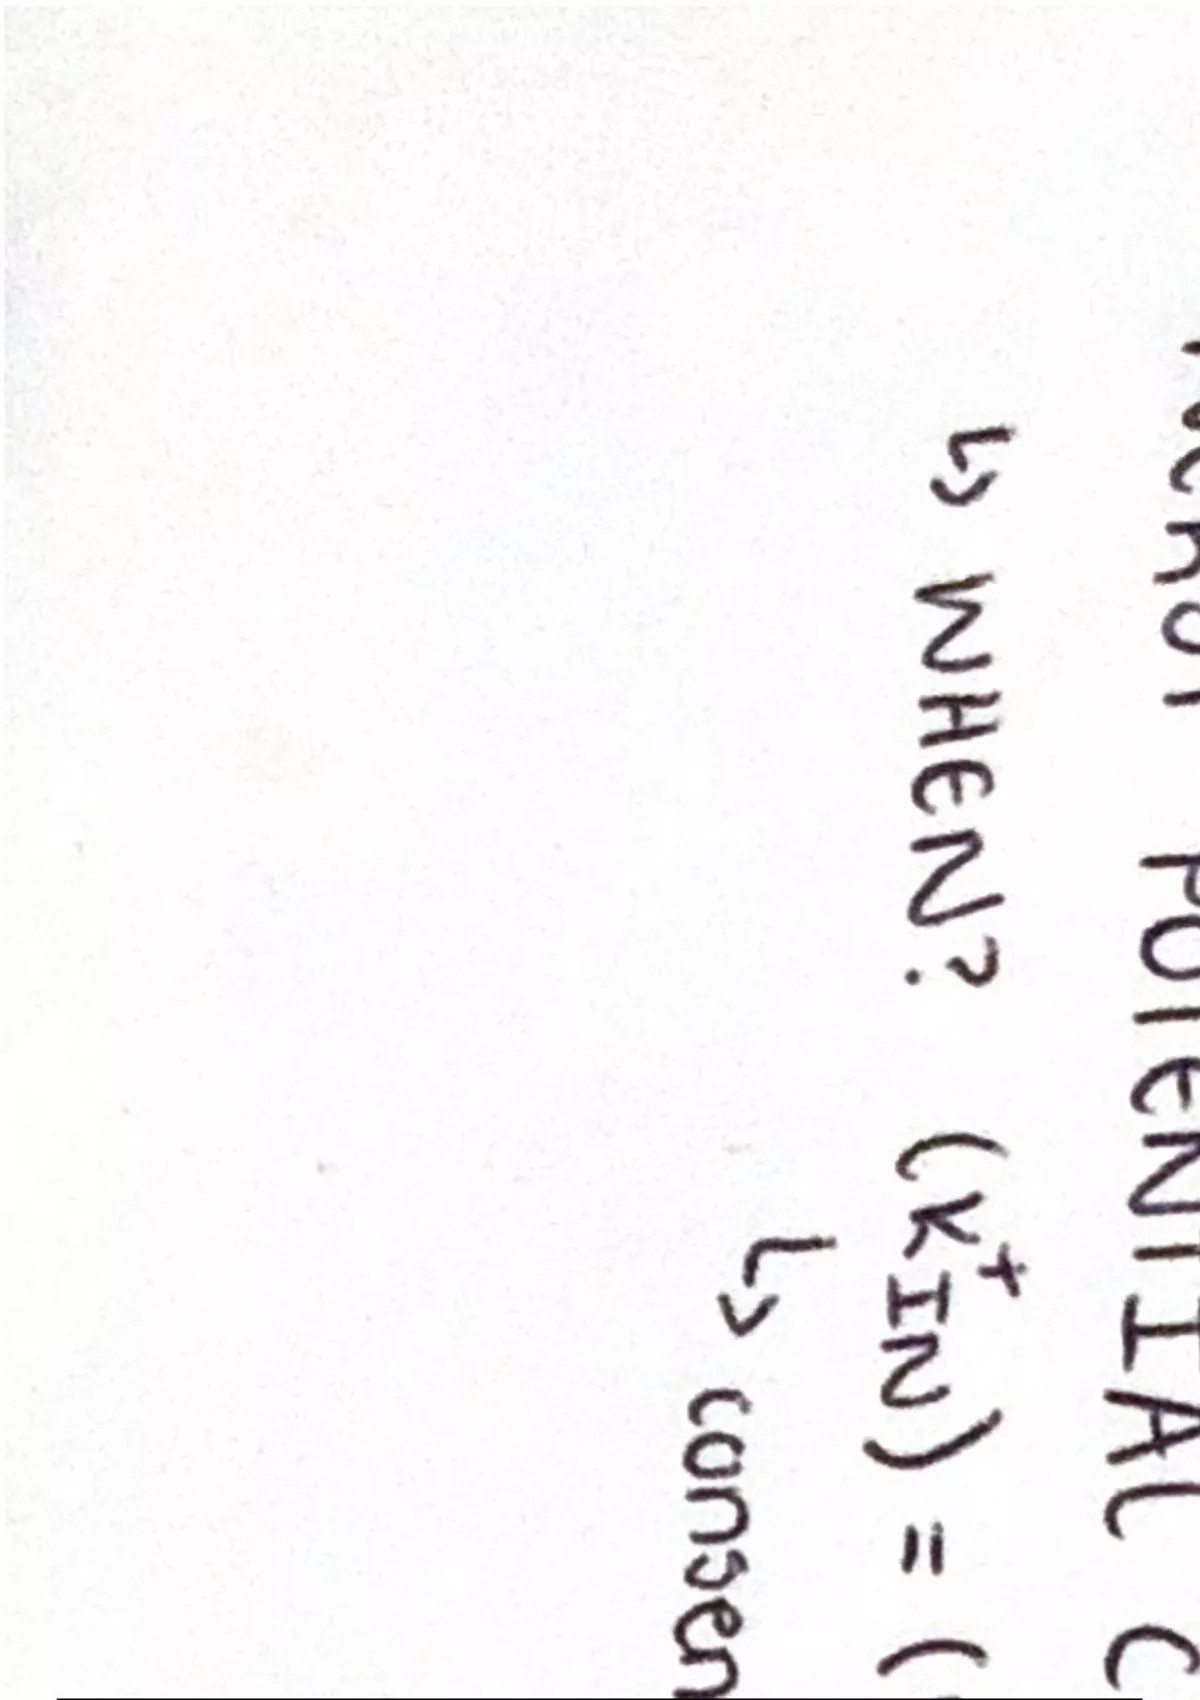 POTENTIAL C
↳ WHEN? (K⁺IN) = (
↳ consen